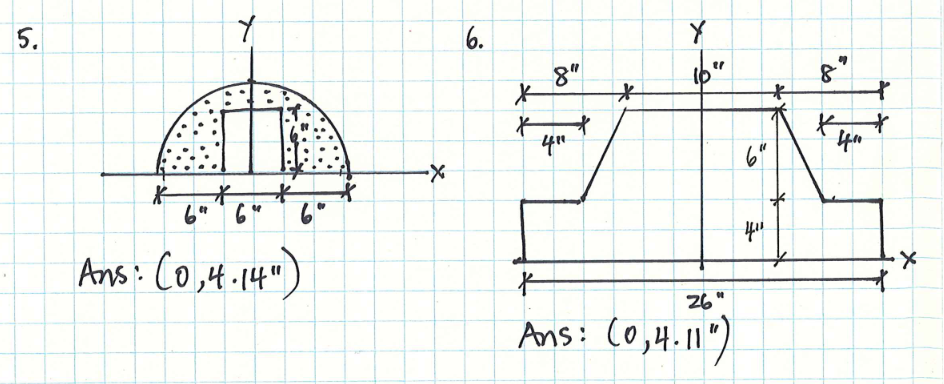 5.
Y
6"
X
6" 6" 6"
Ans: (0,4.14")
6.
Y
8" 10" 8"
4" 4"
6"
4"
X
26"
Ans: (0,4.11")